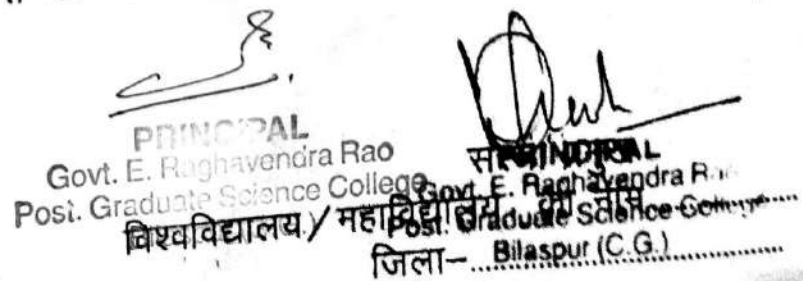 PRINCIPAL
Govt. E. Raghavendra Rao
Post. Graduate Science College
PRINCIPAL
Govt. E. Raghavendra
Post. Graduate Science College
विश्वविद्यालय / महाविद्यालय का नाम
Bilaspur (C.G.)
जिला–